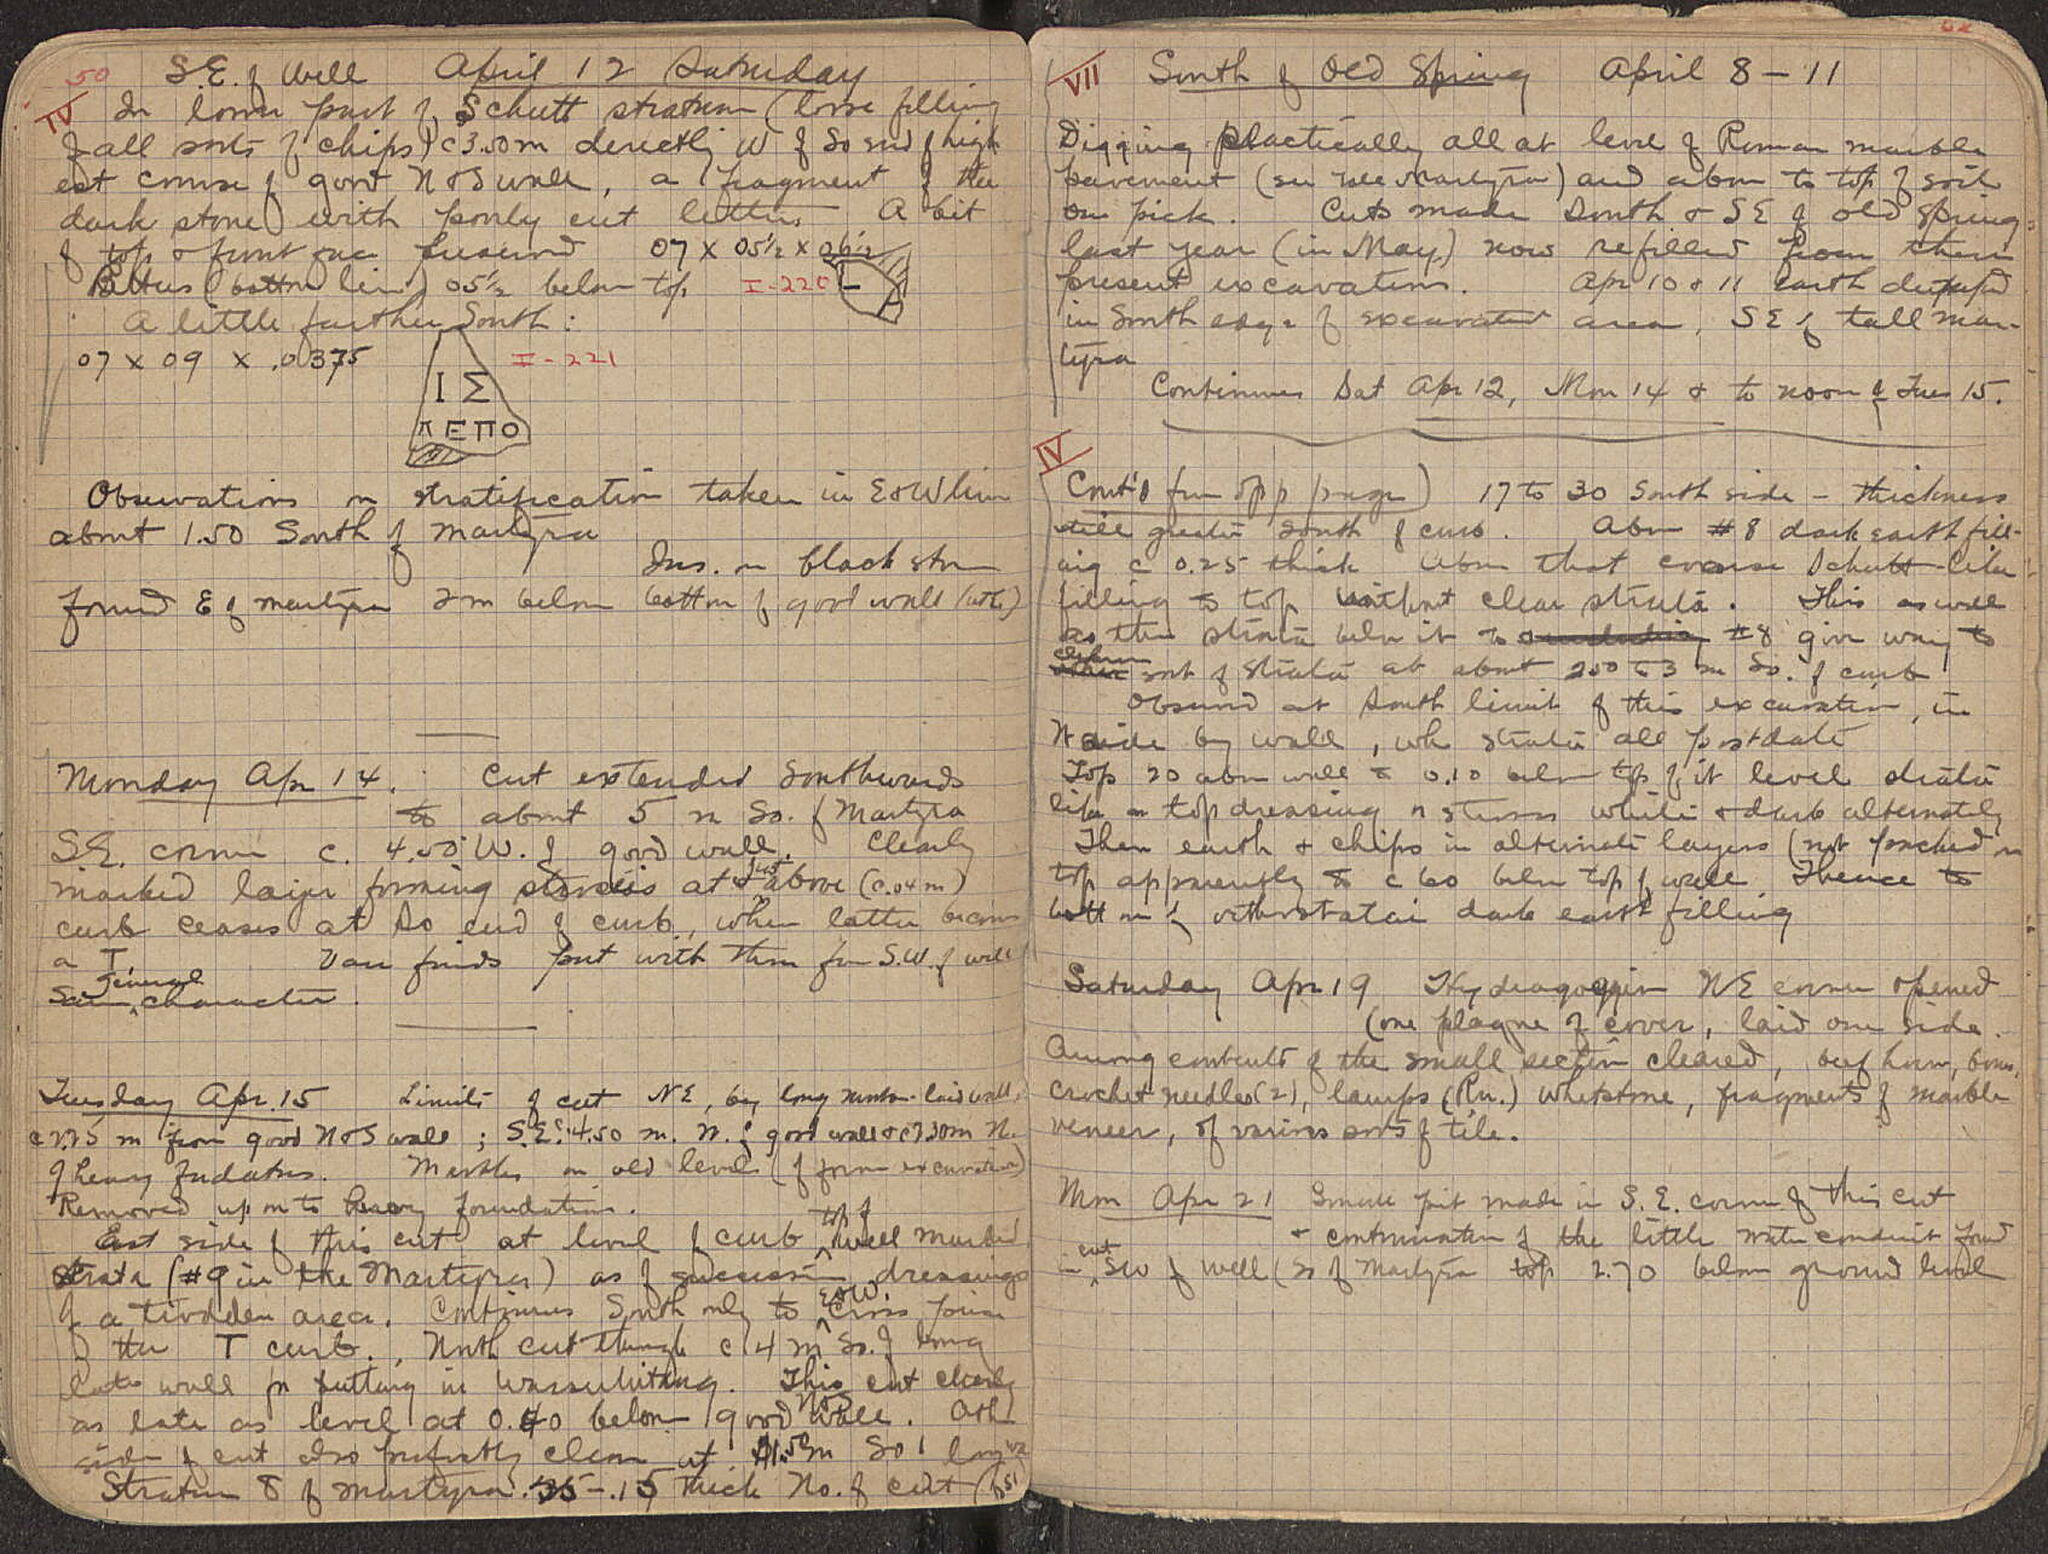 50
S.E. of Well April 12 Saturday
IV In lower part of Schutt stratum (loose filling
of all sorts of chips) c 3.50 m directly W of So end of high
est course of good N & S wall, a fragment of the
dark stone with poorly cut letters A bit
of top & front face preserved 07 x 05½ x 06½
Letters (bottom line) 05½ below top I-220
A little farther South:
07 x 09 x .0375 I-221
Ι Σ
Λ Ε Π Ο
Observations on stratification taken in E & W line
about 1.50 South of martyra
Ins. on black stone
found E of martyra 2 m below bottom of good wall
Monday Apr 14. Cut extended Southwards
to about 5 m So. of Martyra
S.E. corner c. 4.50 W. of good wall. Clearly
marked layer forming at just above (c.04 m)
curb ceases at So end of curb, when latter becomes
a T. Vase finds put with them from S.W. of well
Same general character.
Tuesday Apr. 15 Limits of cut NE, by long mortar-laid wall,
c 7.75 m from good N & S wall; S.E. 4.50 m. W. of good wall & c 7.30 m N.
of heavy fndatns. Marbles on old level (of former excavation)
Removed up on to heavy foundation.
East side of this cut at level of curb top of well marked
strata (#9 in the Martyra) as of successive dressings
of a trodden area. Continues South only to E & W cross piece
of the T curb. North cut through c 4 m So. of long
late wall for putting in Wasserleitung. This cut clearly
as late as level at 0.40 below good N & S wall. Oth
side of cut also perfectly clear at 1.50 m So of long wa
Stratum 8 of martyra .35-.15 thick No. of cut (p 51
VII South of Old Spring April 8-11
Digging practically all at level of Roman marble
pavement (see martyra) and above to top of soil
on pick. Cuts made South & SE of old spring
last year (in May) now refilled from these
present excavations. Apr 10 & 11 earth dumped
in South edge of excavated area, SE of tall mar-
tyra
Continues Sat Apr 12, Mon 14 & to noon of Tues 15.
IV
Cont'd from opp page) 17 to 30 South side - thickness
still greater South of curb. Above #8 dark earth fill-
ing c 0.25 thick above that coarse Schutt-like
filling to top without clear strata. This as well
as the strata below it to #8 give way to
sort of strata at about 250 to 3 m So. of curb
Observed at South limit of this excavation, in
W side by wall, wh. strata all postdate
Top 20 above wall to 0.10 below top of it level strata
like a top dressing of stones white & dark alternately
Then earth & chips in alternate layers (not packed on
top apparently to c 60 below top of wall. Thence to
bottom of dark earth filling
Saturday Apr 19 Hydragogeion NE corner opened
(one plaque of cover, laid one side.
Among contents of the small section cleared, beef horn, bones,
crochet needles (2), lamps (Rn.) whetstone, fragments of marble
veneer, of various sorts of tile.
Mon Apr 21 Small pit made in S.E. corner of this cut
& continuation of the little water conduit found
in cut SW of well (So of Martyra top 2.70 below ground level